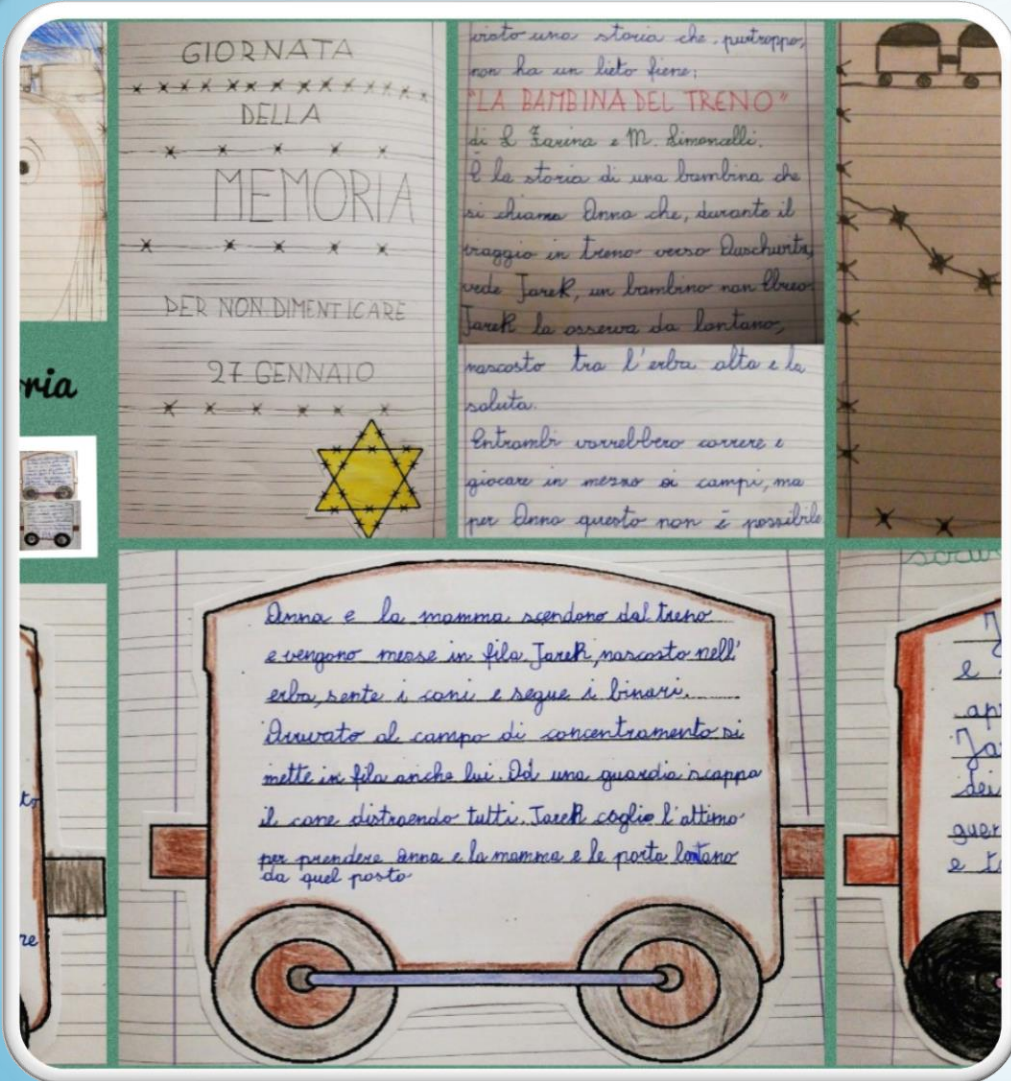 GIORNATA
DELLA
MEMORIA
PER NON DIMENTICARE
27 GENNAIO
una storia che, purtroppo,
non ha un lieto fiene:
"LA BAMBINA DEL TRENO"
di L Farina e M. Simoncelli.
È la storia di una bambina che
si chiama Anna che, durante il
viaggio in treno verso Auschwitz,
vede JareK, un bambino non Ebreo.
JareK la osserva da lontano,
nascosto tra l'erba alta e la
saluta.
Entrambi vorrebbero correre e
giocare in mezzo ai campi, ma
per Anna questo non è possibile
ria
Anna e la mamma scendono dal treno
e vengono messe in fila. JareK, nascosto nell'
erba, sente i cani e segue i binari.
Arrivato al campo di concentramento si
mette in fila anche lui. Ad una guardia scappa
il cane distraendo tutti. JareK coglie l'attimo
per prendere Anna e la mamma e le porta lontano
da quel posto
to
re
J
e
ap
Ja
dei
guer
e t